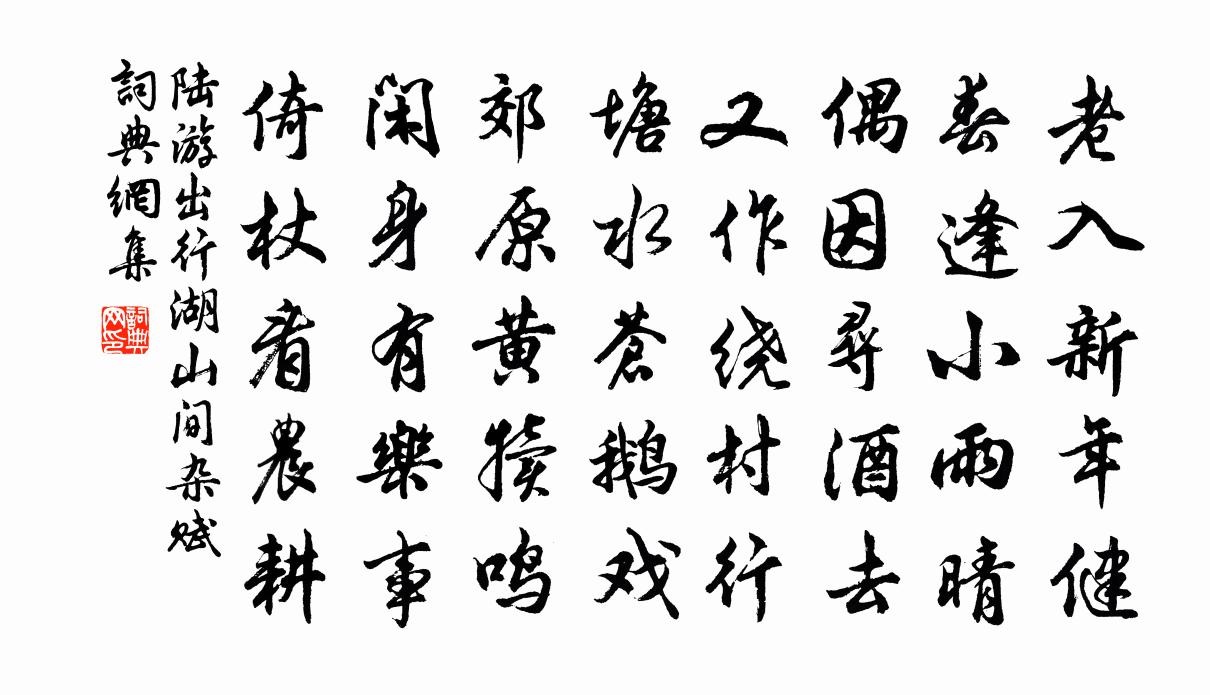 老入新年健
春逢小雨晴
偶因尋酒去
又作绕村行
塘水蒼鹅戏
郊原黄犢鸣
闲身有樂事
倚杖看農耕
陆游出行湖山间杂赋
詞典網集
詞典网印